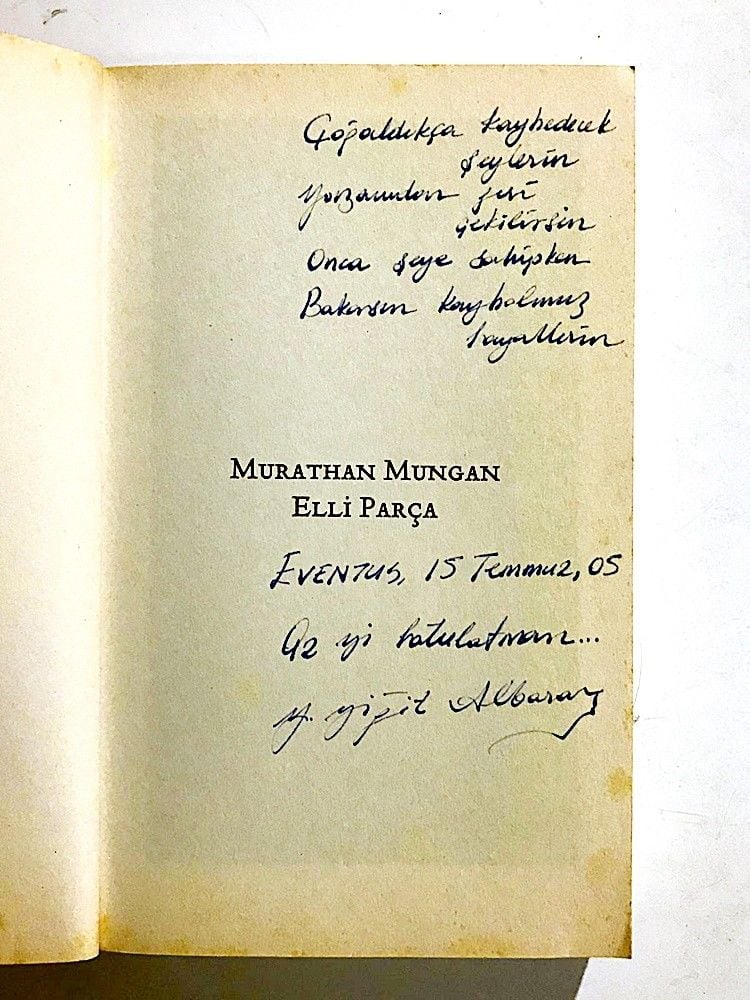 Çoğaldıkça kaybedecek
şeylerin
Yarzamından geri
çekilirsin
Onca şeye sahipken
Bakarsın kaybolmuş
hayallerin
MURATHAN MUNGAN
ELLİ PARÇA
EVENTUS, 15 Temmuz, 05
Az yi hatulatman...
y. yiğit Albaray